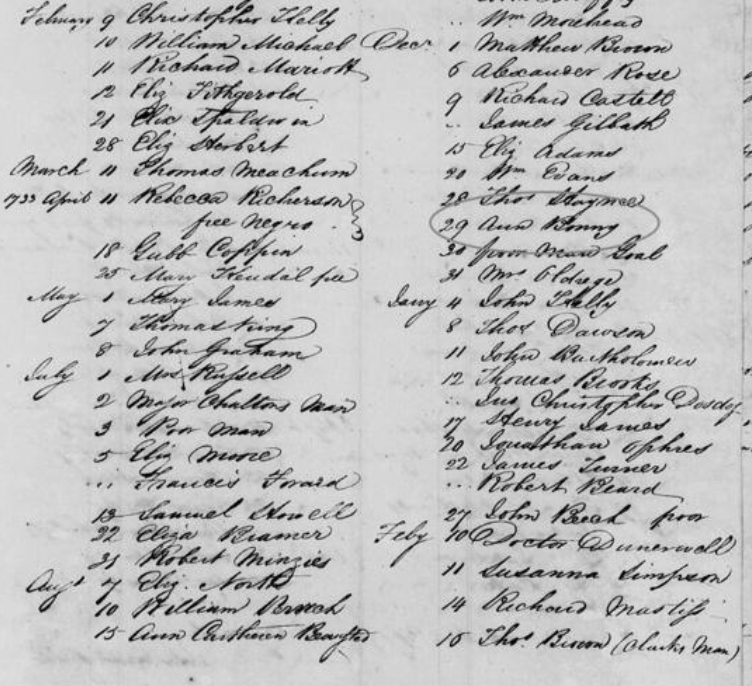 February 9 Christopher Kelly
10 William Michael
11 Richard Mariott
12 Eliz Fithgerold
21 Eliz Spaldwin
28 Eliz Herbert
March 11 Thomas Meachum
1733 April 11 Rebecca Richerson
free Negro
18 Gubb Coffin
25 Mary Kendal free
May 1 Mary James
7 Thomas King
8 John Graham
July 1 Mrs Russell
2 Major Chaltons Man
3 Poor Man
5 Eliz Moore
... Francis Forard
13 Samuel Howell
22 Eliza Bramer
31 Robert Minzies
Augt 7 Eliz North
10 William Brnch
15 Ann
.. Wm Morehead
Decr 1 Matthew Brown
6 Alexander Rose
9 Richard Castell
.. James Gilbath
15 Eliz Adams
20 Wm Evans
28 Thos Haymee
29 Ann Bonny
30 poor Man Goal
31 Mrs Eldrege
Jany 4 John Kelly
8 Thos Dawson
11 John Bartholomew
12 Thomas Brooks
.. Jno Christopher
17 Henry James
20 Jonathan Ophres
22 James Turner
.. Robert Beard
27 John Beech poor
Feby 10 Doctor Dunerwell
11 Susanna Simpson
14 Richard Mastiss
16 Thos Brown (Clarks Man)